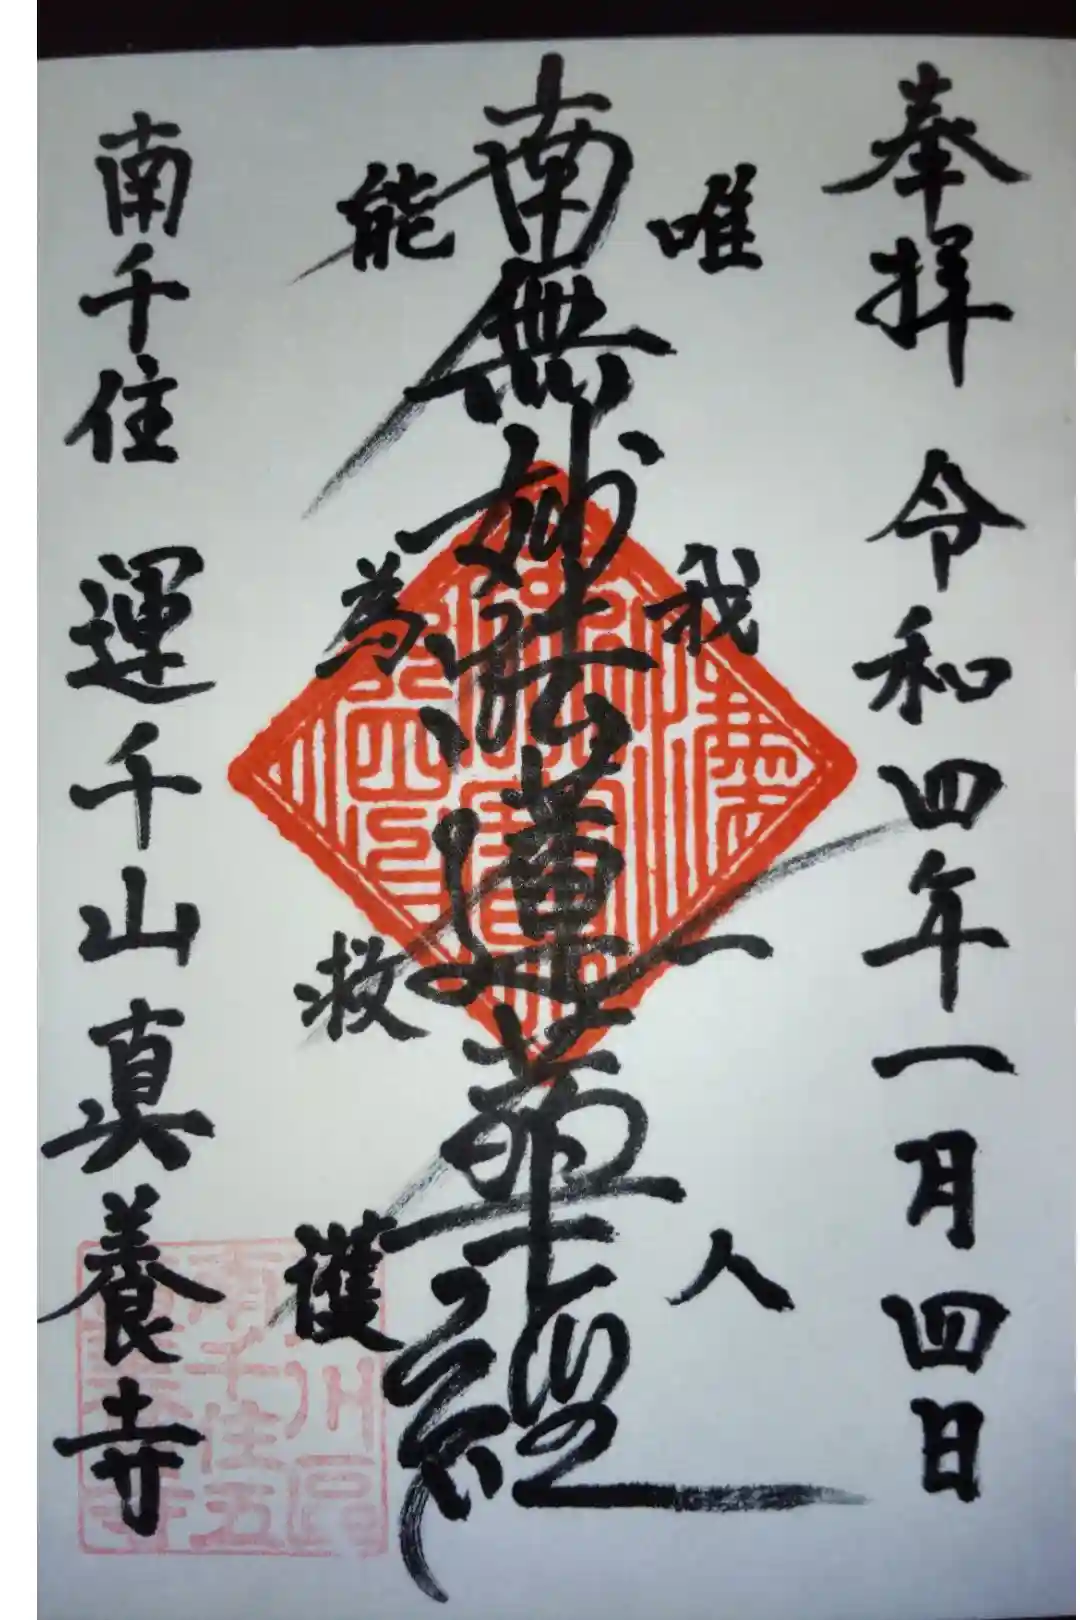 奉拝 令和四年一月四日
唯我一人
南無妙法蓮華経
能為救護
南千住 運千山真養寺
南千住五